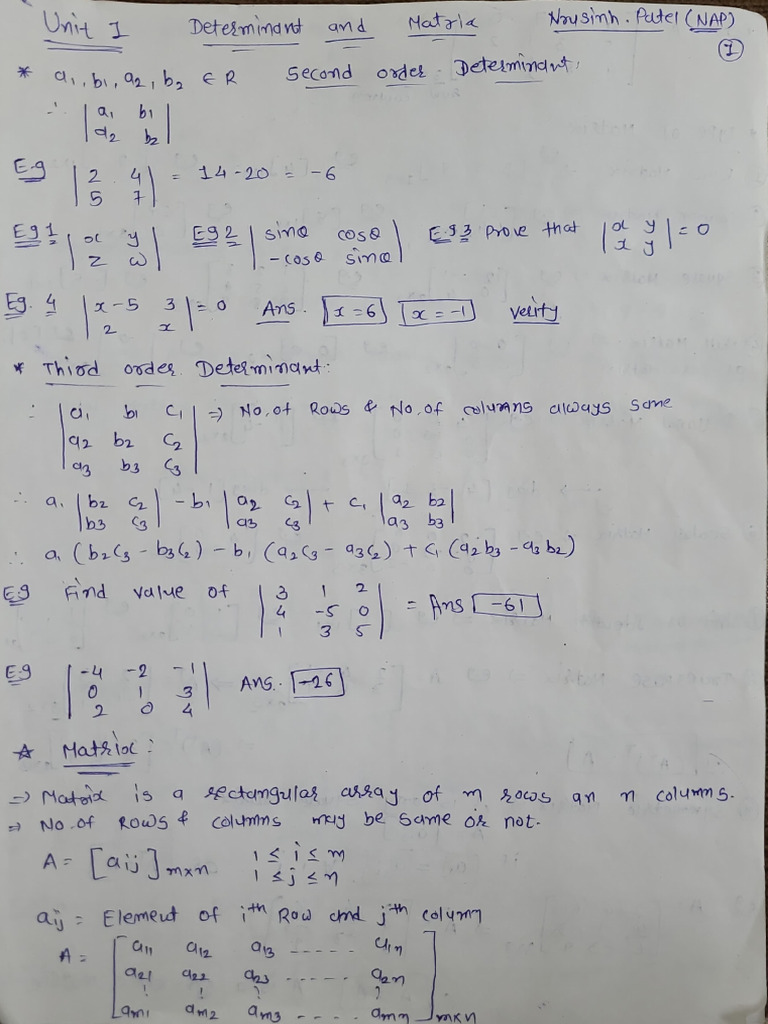 Unit 1 Determinant and Matrix Nrusinh. Patel (NAP)
1
* a1, b1, a2, b2 ∈ R Second order Determinant:
∴ | a1 b1 |
| a2 b2 |
E.g | 2 4 | = 14-20 = -6
| 5 7 |
Eg 1 | x y | Eg 2 | sinθ cosθ | Eg 3 Prove that | x y | = 0
| z w | | -cosθ sinθ | | x y |
Eg. 4 | x-5 3 | = 0 Ans. x=6 x=-1 verity
| 2 x |
* Third order Determinant:
∴ | a1 b1 c1 | ⇒ No. of Rows & No. of columns always same
| a2 b2 c2 |
| a3 b3 c3 |
∴ a1 | b2 c2 | - b1 | a2 c2 | + c1 | a2 b2 |
| b3 c3 | | a3 c3 | | a3 b3 |
∴ a1 (b2c3 - b3c2) - b1 (a2c3 - a3c2) + c1 (a2b3 - a3b2)
Eg Find value of | 3 1 2 |
| 4 -5 0 | = Ans -61
| 1 3 5 |
E.g | -4 -2 -1 |
| 0 1 3 | Ans. -26
| 2 0 4 |
☆ Matrix:
⇒ Matrix is a rectangular array of m rows an n columns.
⇒ No. of Rows & columns may be same or not.
A = [aij]m×n 1 ≤ i ≤ m
1 ≤ j ≤ n
aij = Element of ith Row and jth column
A = [ a11 a12 a13 ----- a1n ]
[ a21 a22 a23 ----- a2n ]
[ am1 am2 am3 ----- amn ]m×n